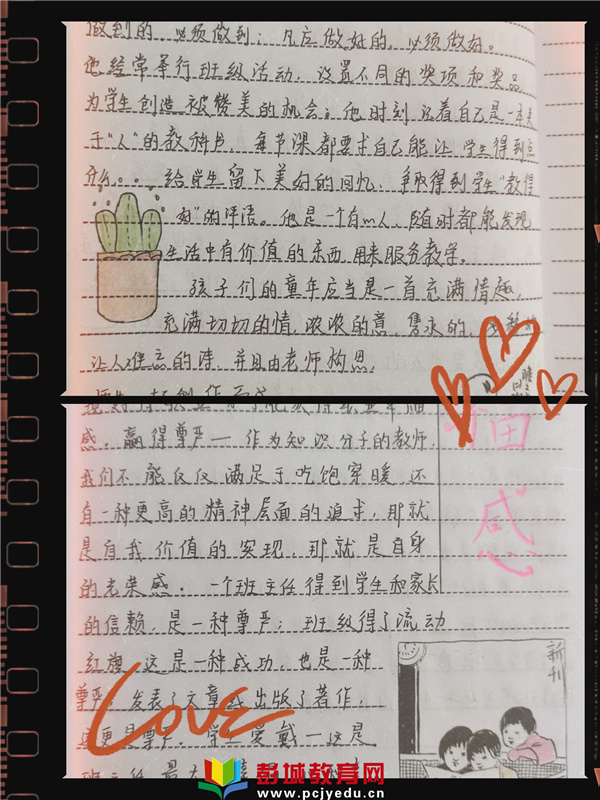 做到的，必须做到；凡应做好的，必须做好。
他经常举行班级活动，设置不同的奖项和奖品
为学生创造被赞美的机会；他时刻记着自己是一本关
于“人”的教科书，每节课都要求自己能让学生得到点
什么。给学生留下美好的回忆，争取得到学生“教得
好”的评语。他是一个有心人，随时都能发现
生活中有价值的东西，用来服务教学。
孩子们的童年应当是一首充满情趣，
充满切切的情，浓浓的意，隽永的，
让人难忘的诗，并且由老师构思，
感，赢得尊严——作为知识分子的教师，
我们不能仅仅满足于吃饱穿暖，还
有一种更高的精神层面的追求，那就
是自我价值的实现，那就是自身
的光荣感。一个班主任得到学生和家长
的信赖，是一种尊严；班级得了流动
红旗，这是一种成功，也是一种
尊严；发表了文章或出版了著作，
这更是尊严。学生爱戴——这是
班主任最大
感
新刊
Love
彭城教育网
www.pcjyedu.cn